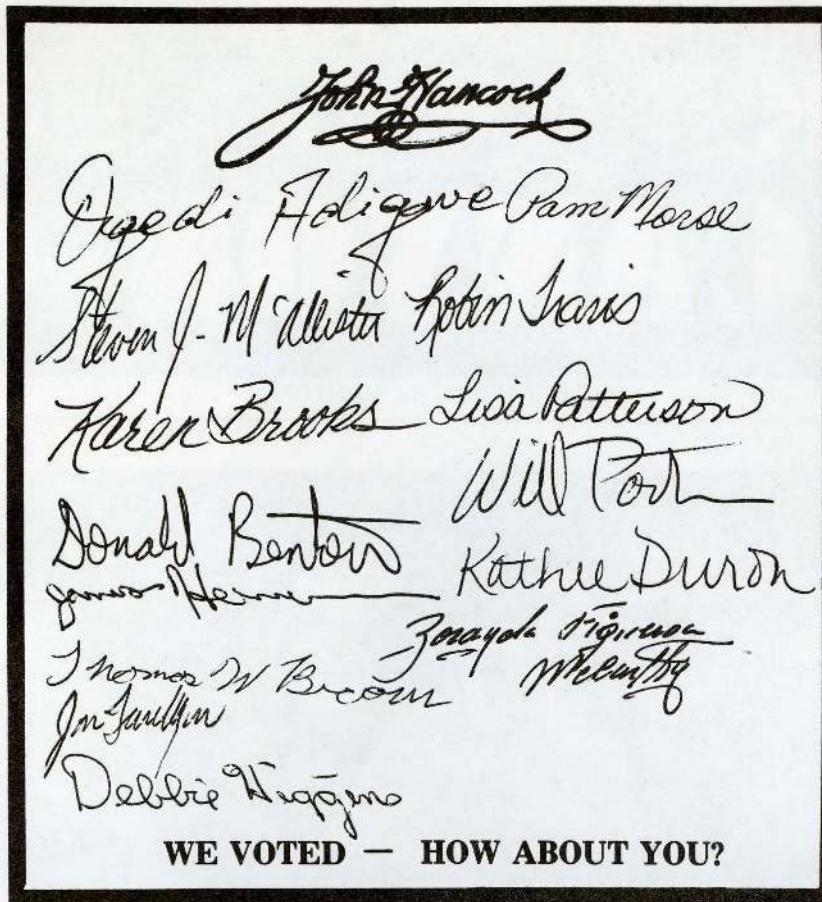 John Hancock
Adigwe Pam Morse
Steven J. McAllister Robin Travis
Karen Brooks Lisa Patterson
Will
Donald Benton
Kathie Duron
James
Zorayda Figueroa
McCarthy
Thomas W Brown
Jon
Debbie Higgins
WE VOTED — HOW ABOUT YOU?